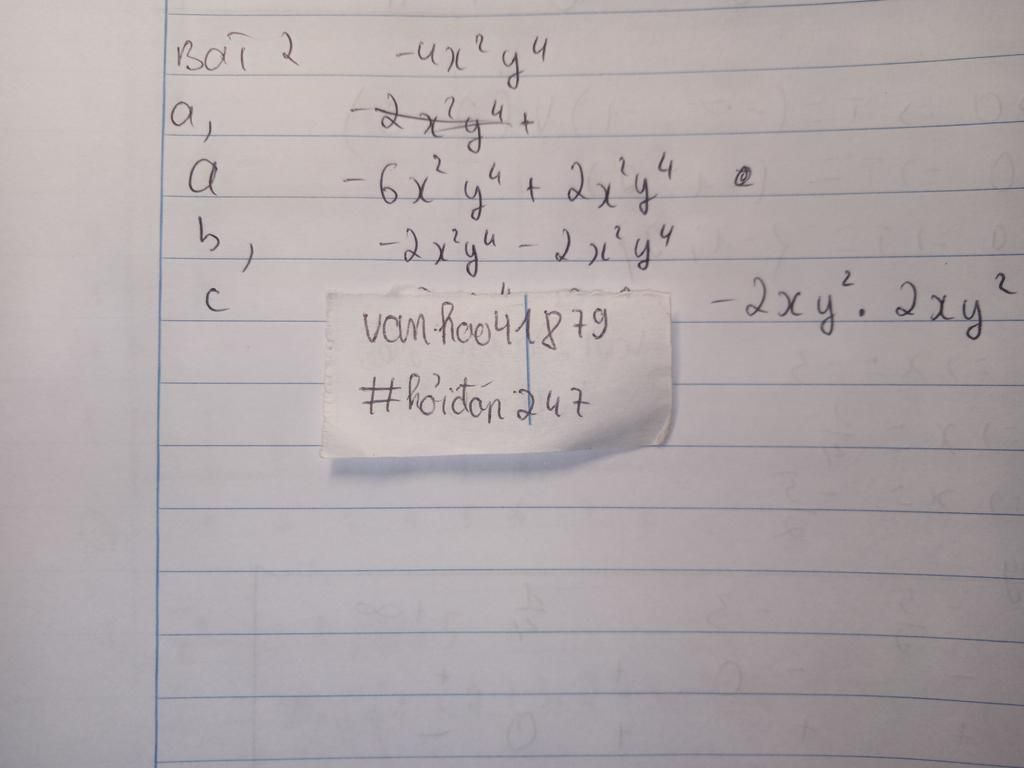 BÀI 2 -4x²y⁴
a,
a -6x²y⁴ + 2x²y⁴
b, -2x²y⁴ - 2x²y⁴
c -2xy² . 2xy²
van.hao41879
#hỏiđáp247